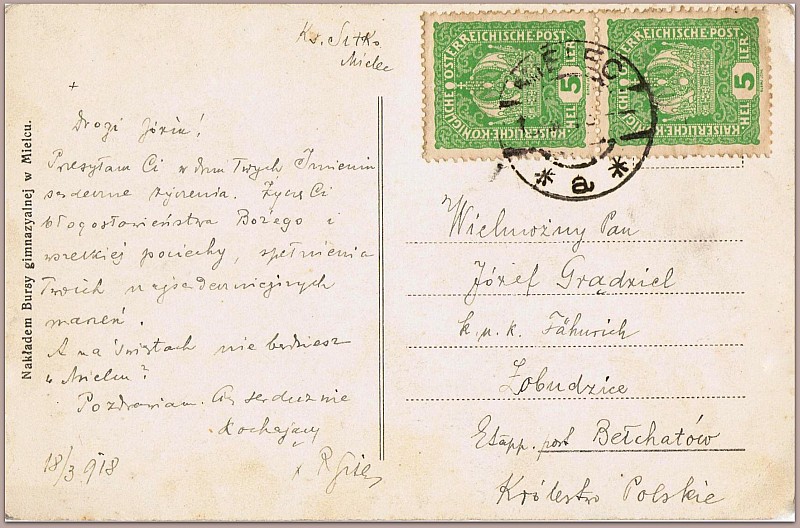 Ks. Sitko
Mielec
+
Drogi Józiu!
Przesyłam Ci w dniu Twych Imienin
serdeczne życzenia. Życzę Ci
błogosławieństwa Bożego i
wszelkiej pociechy, spełnienia
Twoich najserdeczniejszych
marzeń.
A na świętach nie będziesz
w Mielcu?
Pozdrawiam Cię serdecznie
kochający
18/3 918
Nakładem Bursy gimnazyalnej w Mielcu.
KAISERLICHE KÖNIGLICHE ÖSTERREICHISCHE POST
5 HELLER
KAISERLICHE KÖNIGLICHE ÖSTERREICHISCHE POST
5 HELLER
* a *
Wielmożny Pan
Józef Grądziel
k. u. k. Fähnrich
Łobudzice
Etapp. post Bełchatów
Królestwo Polskie